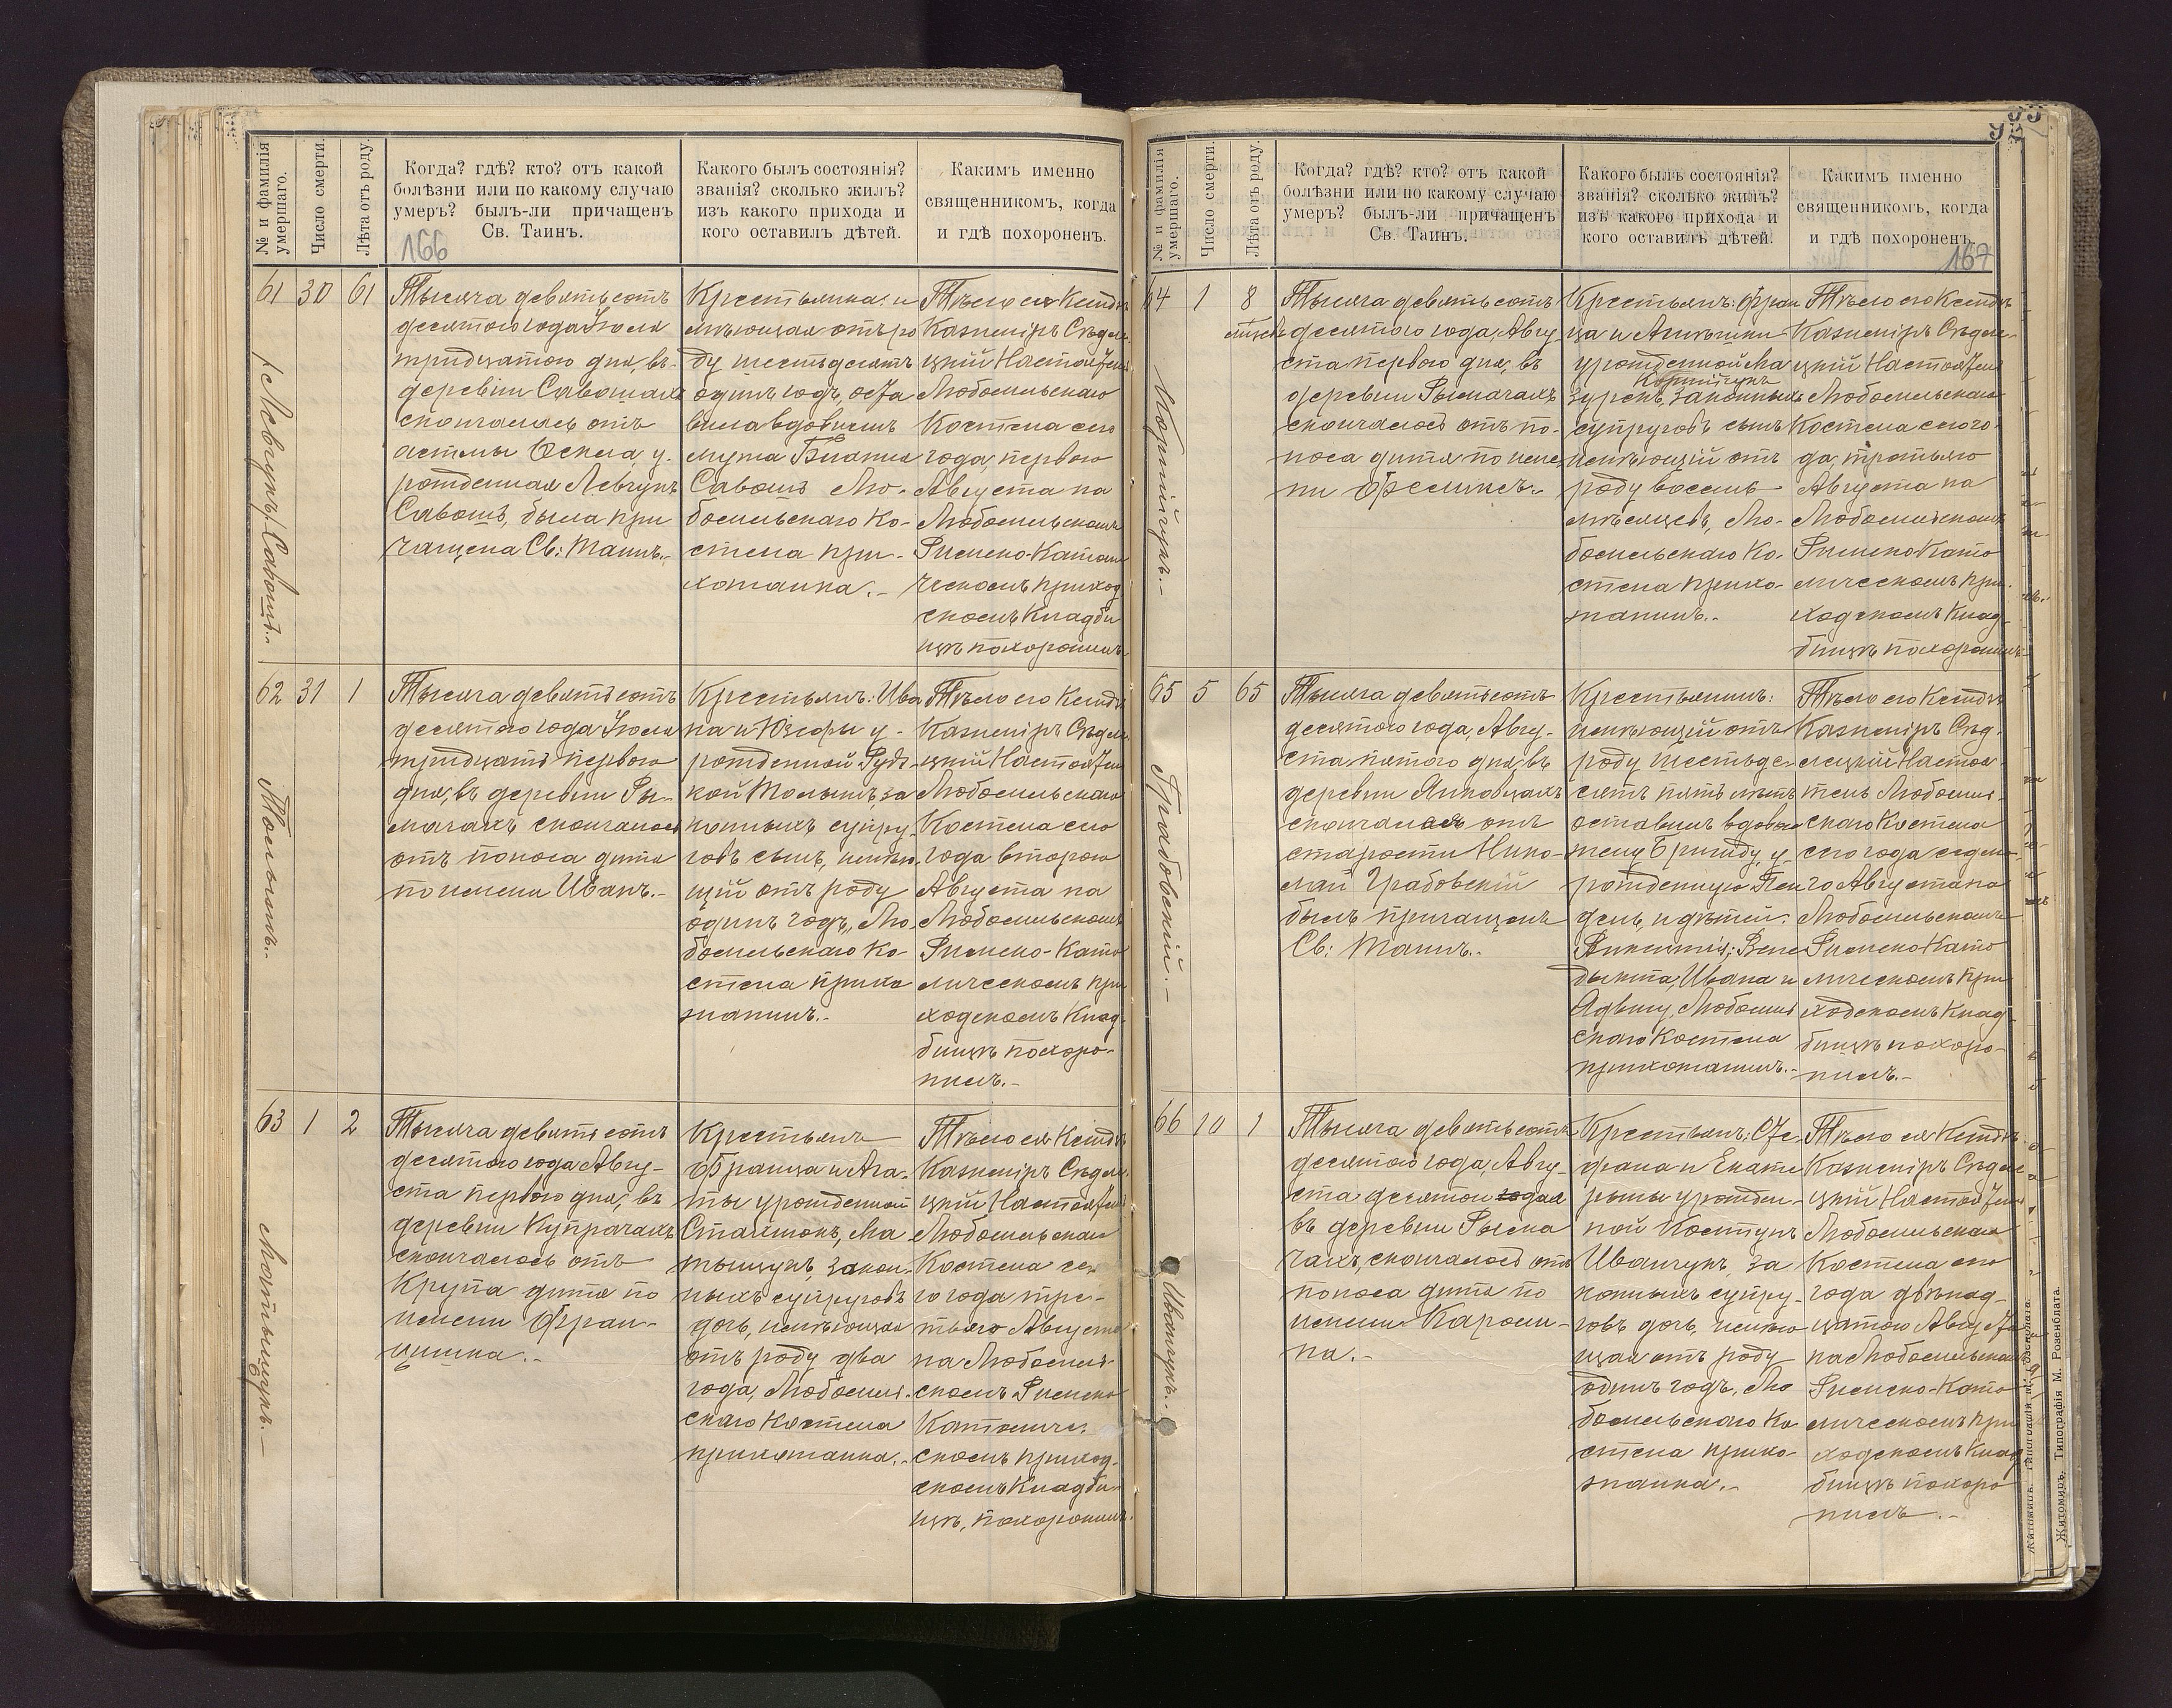 № и фамилія умершаго.
Число смерти.
Лѣта отъ роду.
Когда? гдѣ? кто? отъ какой
болѣзни или по какому случаю
умеръ? былъ-ли причащенъ
Св. Таинъ.
166
Какого былъ состоянія?
званія? сколько жилъ?
изъ какого прихода и
кого оставилъ дѣтей.
Какимъ именно
священникомъ, когда
и гдѣ похороненъ.
61
30
61
Савошъ.
Тысяча девятьсотъ
десятого года Іюля
тридцатого дня, въ
деревни Савошахъ
скончалась отъ
астмы Текля, у-
рожденная Левчукъ
Савошъ, была при
чащена Св: Таинъ.-
Крестьянка: и
мѣющая отъ ро
ду шестьдесятъ
одинъ годъ, оста
вила вдовцемъ
мужа
Савошъ Лю-
бомльскаго Ко-
стела при-
хожанка.-
Тѣло ея Ксендзъ
Казиміръ Сѣдле-
цкій Настоятель
Любомльскаго
Костела сего
года, первого
Августа на
Любомльскомъ
Римско-Католи
ческомъ приход
скомъ Кладби
щѣ похоронилъ.
62
31
1
Тысяча девятьсотъ
десятого года Іюля
тридцать первого
дня, въ деревни Ры-
мачахъ скончалось
отъ поноса дитя
по имени Иванъ.-
Крестьянъ: Ива
на и Юзефы у-
рожденной Рудз-
кой за
конныхъ супру-
говъ сынъ, имѣю-
щій отъ роду
одинъ годъ, Лю-
бомльскаго Ко-
стела прихо
жанинъ.-
Тѣло его Ксендзъ
Казиміръ Сѣдле
цкій Настоятель
Любомльскаго
Костела сего
года второго
Августа на
Любомльскомъ
Римско-Като
лическомъ при
ходскомъ Клад-
бищѣ похоро-
нилъ.-
63
1
2
Тысяча девятьсотъ
десятого года Авгу-
ста первого дня, въ
деревни Купрачахъ
скончалось отъ
Крупа дитя по
имени Фран-
цишка.-
Крестьянъ
Франца и Ага-
ты урожденной
Стахнюкъ, Ма
тыщукъ, закон-
ныхъ супруговъ
дочь, имѣющая
отъ роду два
года, Любомль-
скаго Костела
прихожанка.-
Тѣло ея Ксендзъ
Казиміръ Сѣдле-
цкій Настоятель
Любомльскаго
Костела се-
го года тре-
тьяго Августа
на Любомль-
скомъ Римско
Католиче-
скомъ приход-
скомъ Кладби-
щѣ, похоронилъ.
Матыщукъ.-
№ и фамилія умершаго.
Число смерти.
Лѣта отъ роду.
Когда? гдѣ? кто? отъ какой
болѣзни или по какому случаю
умеръ? былъ-ли причащенъ
Св. Таинъ.
Какого былъ состоянія?
званія? сколько жилъ?
изъ какого прихода и
кого оставилъ дѣтей.
Какимъ именно
священникомъ, когда
и гдѣ похороненъ.
167
64
1
8
Тысяча девятьсотъ
десятого года, Авгу
ста первого дня, въ
деревни Рымачахъ
скончалось отъ по-
носа дитя по име
ни Феликсъ.-
Крестьянъ: Фран
ца и Агнѣшки
урожденной Ма
зурекъ, законныхъ
супруговъ сынъ
имѣющій отъ
роду восемь
мѣсяцевъ, Лю-
бомльскаго Ко-
стела прихо-
жанинъ.-
Тѣло его Ксендзъ
Казиміръ Сѣдле-
цкій Настоятель
Любомльскаго
Костела сего го-
да, третьяго
Августа на
Любомльскомъ
Римско Като
лическомъ при-
ходскомъ Клад-
бищѣ похоронилъ.
65
5
65
Грабовскій.-
Тысяча девятьсотъ
десятого года, Авгу-
ста пятого дня, въ
деревни Янковцахъ
скончался отъ
старости Нико-
лай Грабовскій
былъ причащенъ
Св: Таинъ.-
Крестьянинъ:
имѣющій отъ
роду шестьде-
сятъ пять лѣтъ
оставилъ вдовою
жену Бригиду, у-
рожденную
и дѣтей:
Ивана и
Ядвигу, Любомль
скаго Костела
прихожанинъ.-
Тѣло его Ксендзъ
Казиміръ Сѣд-
лецкій Настоя-
тель Любомль-
скаго Костела
сего года седмо-
го Августа на
Любомльскомъ
Римско Като
лическомъ при
ходскомъ Клад-
бищѣ похоро-
нилъ.-
66
10
1
Иванчукъ.-
Тысяча девятьсотъ
десятого года, Авгу-
ста десятого
въ деревни Рыма
чахъ, скончалось отъ
поноса дитя по
имени Кароли-
на.-
Крестьянъ: Сте-
фана и Екате
рины урожден-
ной Костукъ
Иванчукъ, за
конныхъ супру-
говъ дочь, имѣю
щая отъ роду
одинъ годъ, Лю
бомльскаго Ко
стела прихо-
жанка.-
Тѣло ея Ксендзъ
Казиміръ Сѣдле
цкій Настоятель
Любомльскаго
Костела сего
года двѣнад-
цатого Августа
на Любомльскомъ
Римско-Като
лическомъ при
ходскомъ Клад
бищѣ похоро
нилъ.-
Житомиръ. Типографія М. Розенблата.